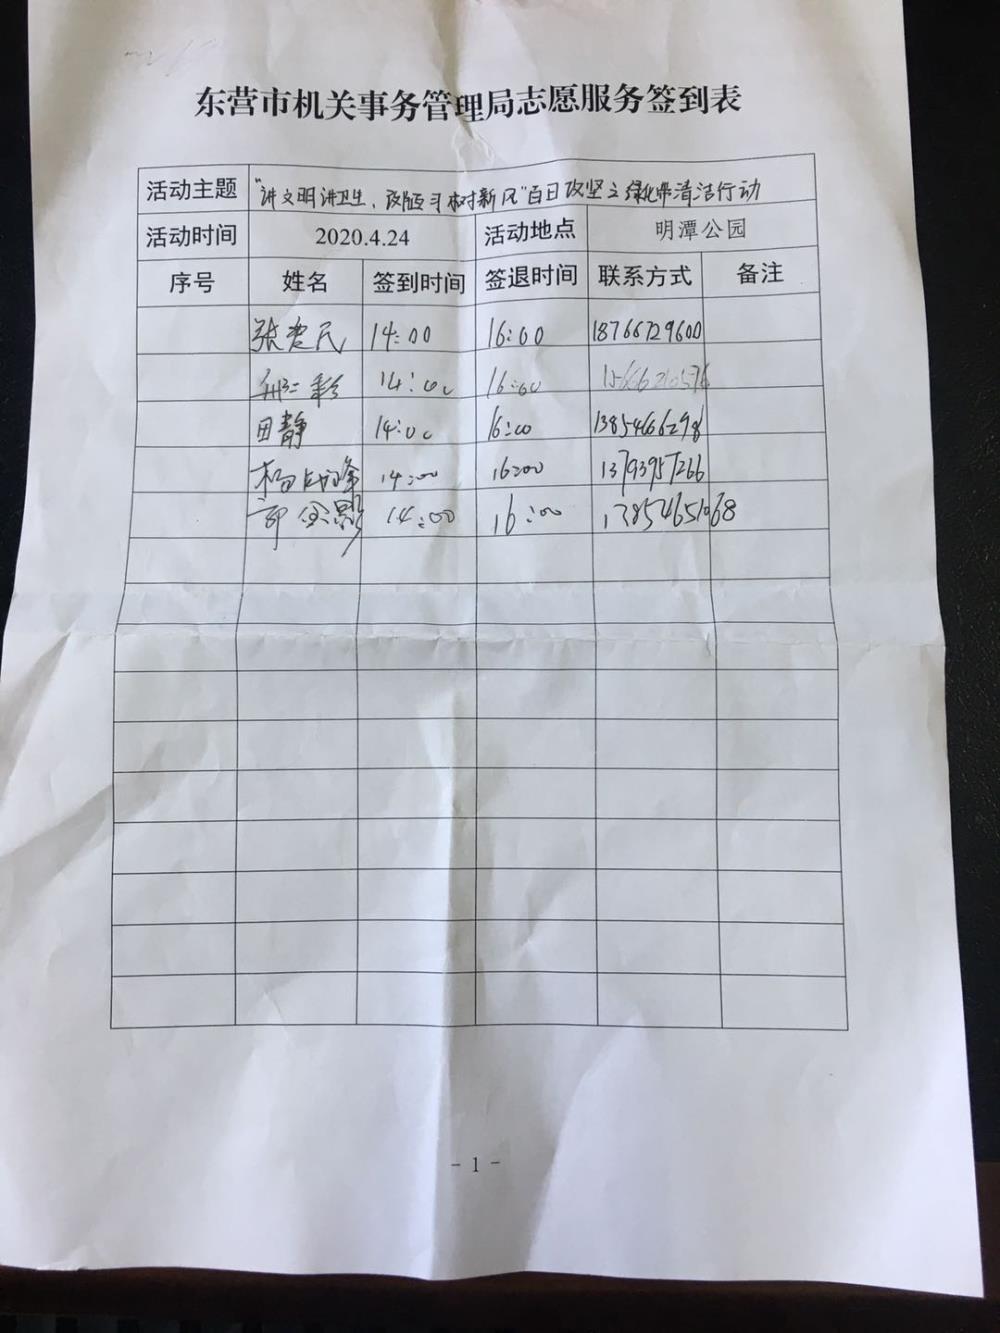 东营市机关事务管理局志愿服务签到表
活动主题 "讲文明讲卫生、改陋习树新风"百日攻坚之绿化带清洁行动
活动时间 2020.4.24 活动地点 明潭公园
序号 姓名 签到时间 签退时间 联系方式 备注
张 民 14:00 16:00 18766729600
彩 14:00 16:00
田静 14:00 16:00 13854666298
杨 峰 14:00 16:00 13793957266
14:00 16:00 13854651068
- 1 -